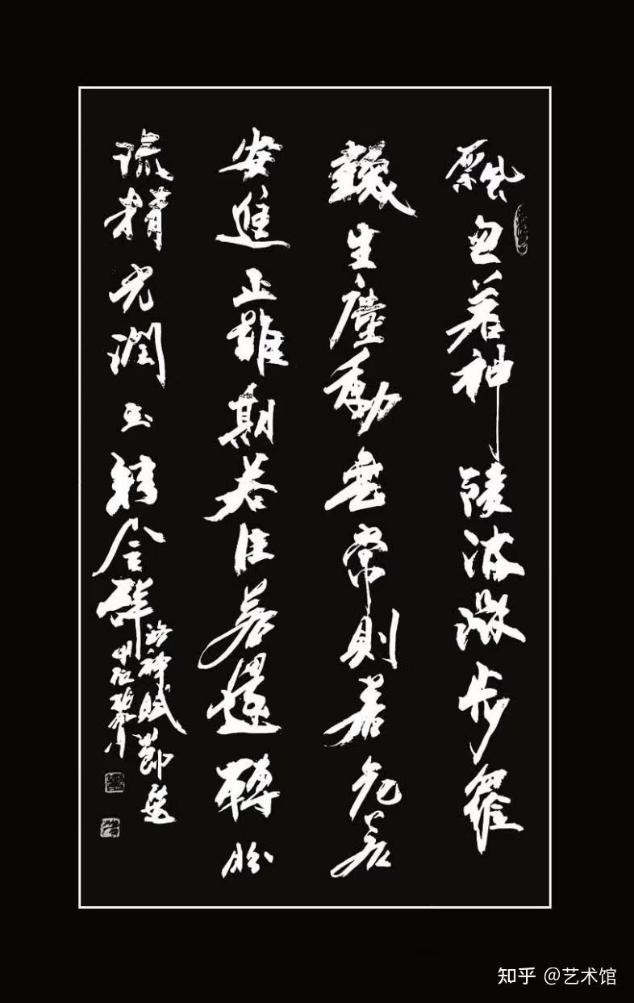 飄忽若神陵波微步羅
襪生塵動無常則若危若
安進止難期若往若還轉盼
流精光潤玉顏含辭
洛神賦節選
知乎 @艺术馆